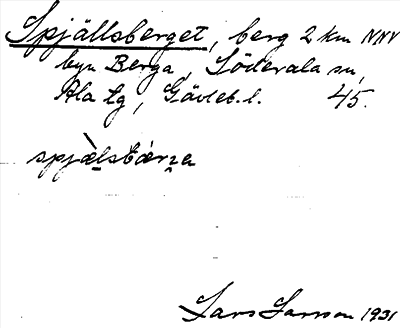 Spjällsberget, berg 2 km NNV
byn Berga, Söderala sn,
Ala tg, Gävleb. l. 45.
spjæ̀lsbærɟe
Lars Larsson 1931